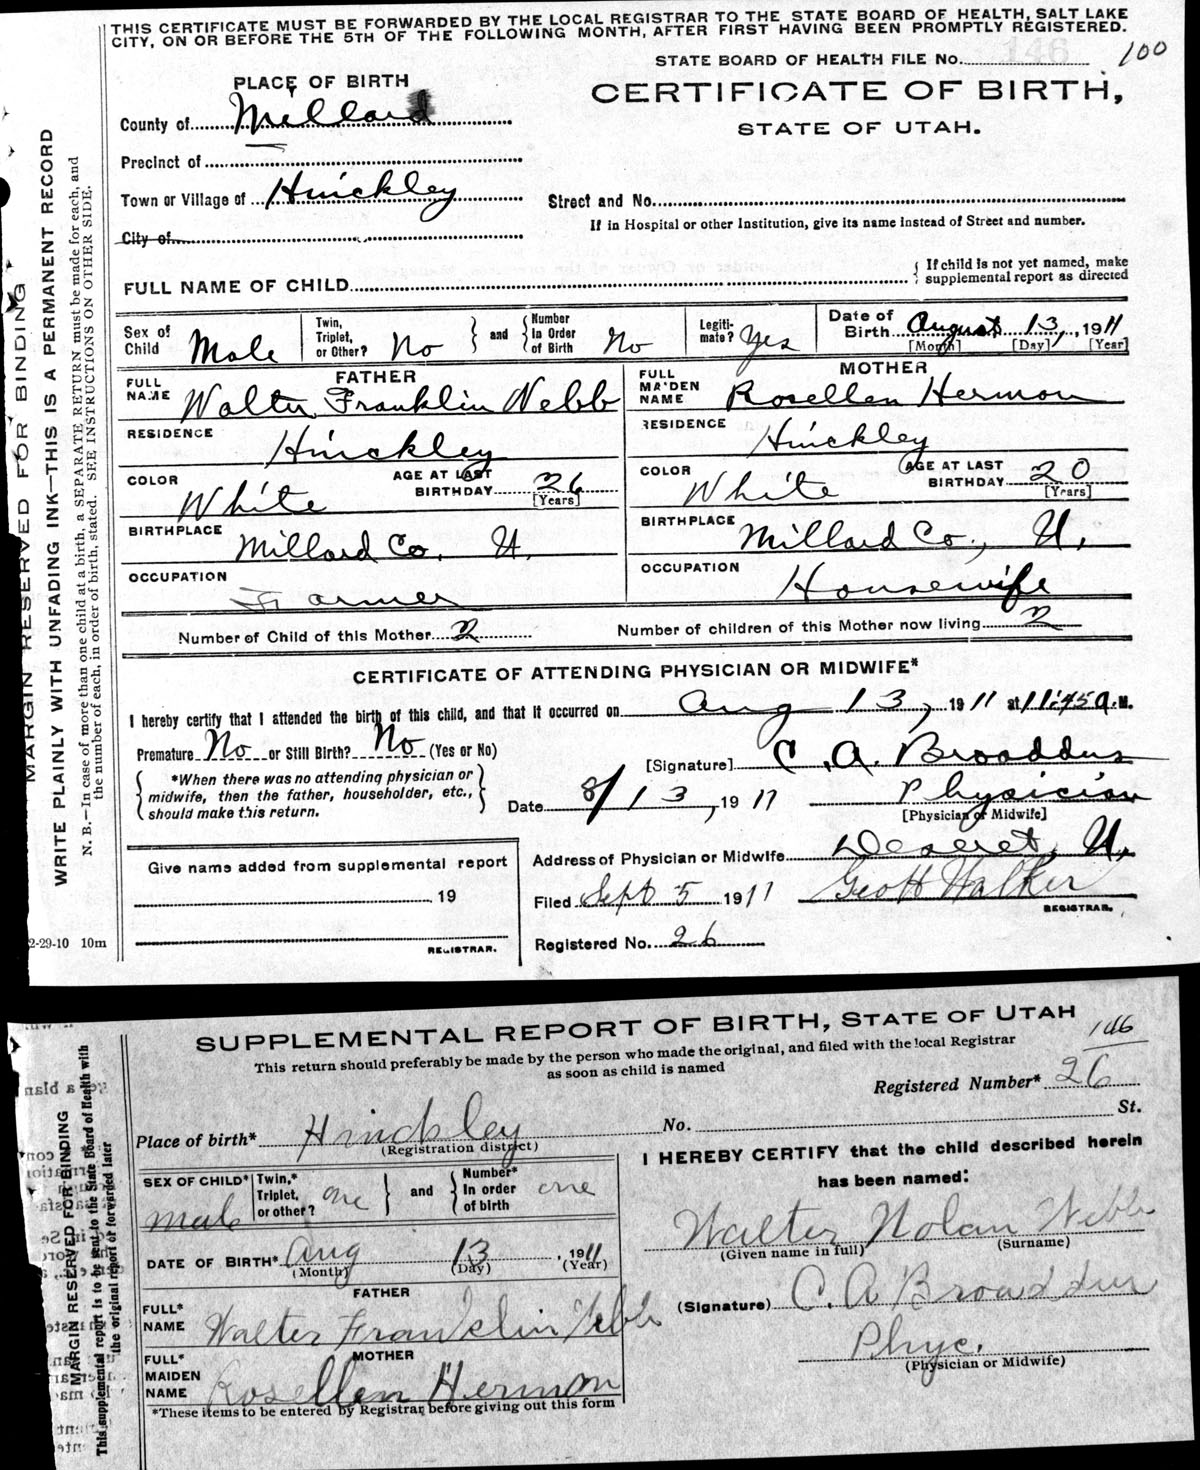 THIS CERTIFICATE MUST BE FORWARDED BY THE LOCAL REGISTRAR TO THE STATE BOARD OF HEALTH, SALT LAKE
CITY, ON OR BEFORE THE 5TH OF THE FOLLOWING MONTH, AFTER FIRST HAVING BEEN PROMPTLY REGISTERED.
STATE BOARD OF HEALTH FILE NO. 146 100
PLACE OF BIRTH
CERTIFICATE OF BIRTH,
STATE OF UTAH.
County of Millard
Precinct of
Town or Village of Hinckley
Street and No.
If in Hospital or other Institution, give its name instead of Street and number.
City of
FULL NAME OF CHILD
If child is not yet named, make
supplemental report as directed
Sex of Child Male
Twin, Triplet, or Other? No
and Number In Order of Birth No
Legiti- mate? Yes
Date of Birth August 13, 1911
[Month] [Day] [Year]
FATHER
FULL NAME Walter Franklin Webb
RESIDENCE Hinckley
COLOR White
AGE AT LAST BIRTHDAY 26 [Years]
BIRTHPLACE Millard Co. U.
OCCUPATION Farmer
MOTHER
FULL MAIDEN NAME Rosellen Hermon
RESIDENCE Hinckley
COLOR White
AGE AT LAST BIRTHDAY 20 [Years]
BIRTHPLACE Millard Co., U.
OCCUPATION Housewife
Number of Child of this Mother 2
Number of children of this Mother now living 2
CERTIFICATE OF ATTENDING PHYSICIAN OR MIDWIFE*
I hereby certify that I attended the birth of this child, and that it occurred on Aug 13, 1911 at 11:45 a.M.
Premature No or Still Birth? No (Yes or No)
[Signature] C. A. Broaddus
*When there was no attending physician or
midwife, then the father, householder, etc.,
should make this return.
Date 8/13, 1911
Physician
[Physician or Midwife]
Address of Physician or Midwife Deseret, U.
Give name added from supplemental report
19
REGISTRAR.
Filed Sept 5 1911 Geo H Walker
REGISTRAR.
Registered No. 26
2-29-10 10m
MARGIN RESERVED FOR BINDING
WRITE PLAINLY WITH UNFADING INK—THIS IS A PERMANENT RECORD
N. B.—In case of more than one child at a birth, a SEPARATE RETURN must be made for each, and
the number of each, in order of birth, stated. SEE INSTRUCTIONS ON OTHER SIDE.
SUPPLEMENTAL REPORT OF BIRTH, STATE OF UTAH
146
This return should preferably be made by the person who made the original, and filed with the local Registrar
as soon as child is named
Registered Number* 26
Place of birth* Hinckley No. St.
(Registration district)
SEX OF CHILD* male
Twin,* Triplet, or other? one
and Number* In order of birth one
DATE OF BIRTH* Aug 13, 1911
(Month) (Day) (Year)
FATHER
FULL* NAME Walter Franklin Webb
MOTHER
FULL* MAIDEN NAME Rosellen Hermon
*These items to be entered by Registrar before giving out this form
I HEREBY CERTIFY that the child described herein
has been named:
Walter Nolan Webb
(Given name in full) (Surname)
(Signature) C. A Broaddus
Phyc.
(Physician or Midwife)
MARGIN RESERVED FOR BINDING
This supplemental report is to be sent to the State Board of Health with
the original report or forwarded later